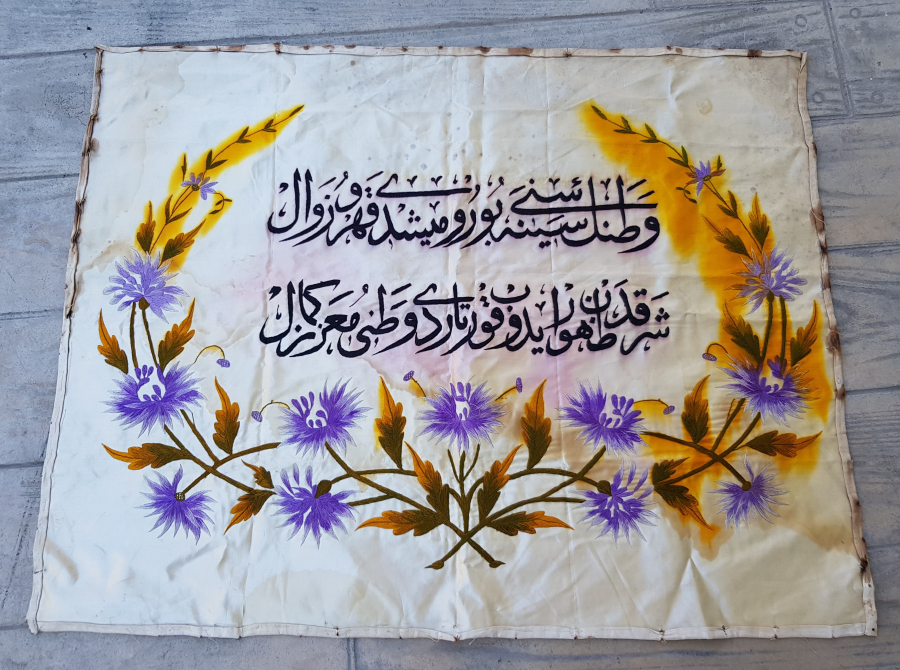 وطنك سینه سنی بورومیشدی قهر و زوال
شرقدن ظهور ایدوب قورتاردی وطنی معزز کمال